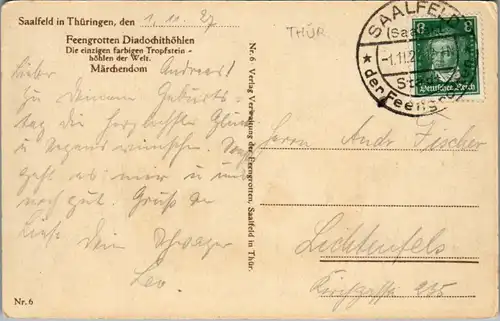 Saalfeld in Thüringen, den 1. 11. 27
Feengrotten Diadochithöhlen
Die einzigen farbigen Tropfstein-
höhlen der Welt.
Märchendom
Lieber Andreas!
Zu Deinem Geburts-
tag die herzlichsten Glück
u Segens wünschen.
geht es mir u
noch gut. Gruß
Liese Dein Schwager
Leo.
Nr. 6
Nr. 6 Verlag Verwaltung der Feengrotten, Saalfeld in Thür.
THÜR.
SAALFELD
(Saale)
-1.11.2
Stadt
der Feengr
8 8
Deutsches Reich
Herrn Andr Fischer
Lichtenfels